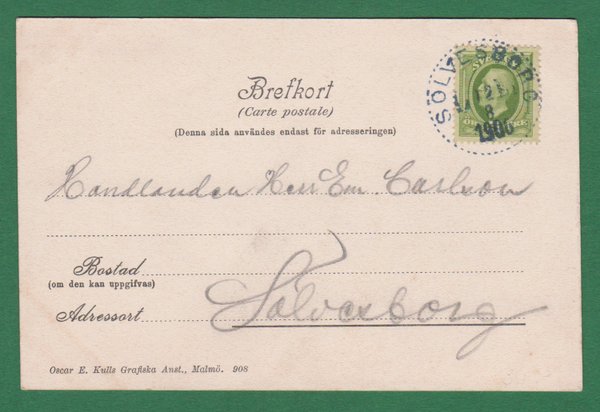 Brefkort
(Carte postale)
(Denna sida användes endast för adresseringen)
SÖLVESBORG
1906
Handlanden Herr Em. Carlson
Bostad
(om den kan uppgifvas)
Sölvesborg
Adressort
Oscar E. Kulls Grafiska Anst., Malmö. 908